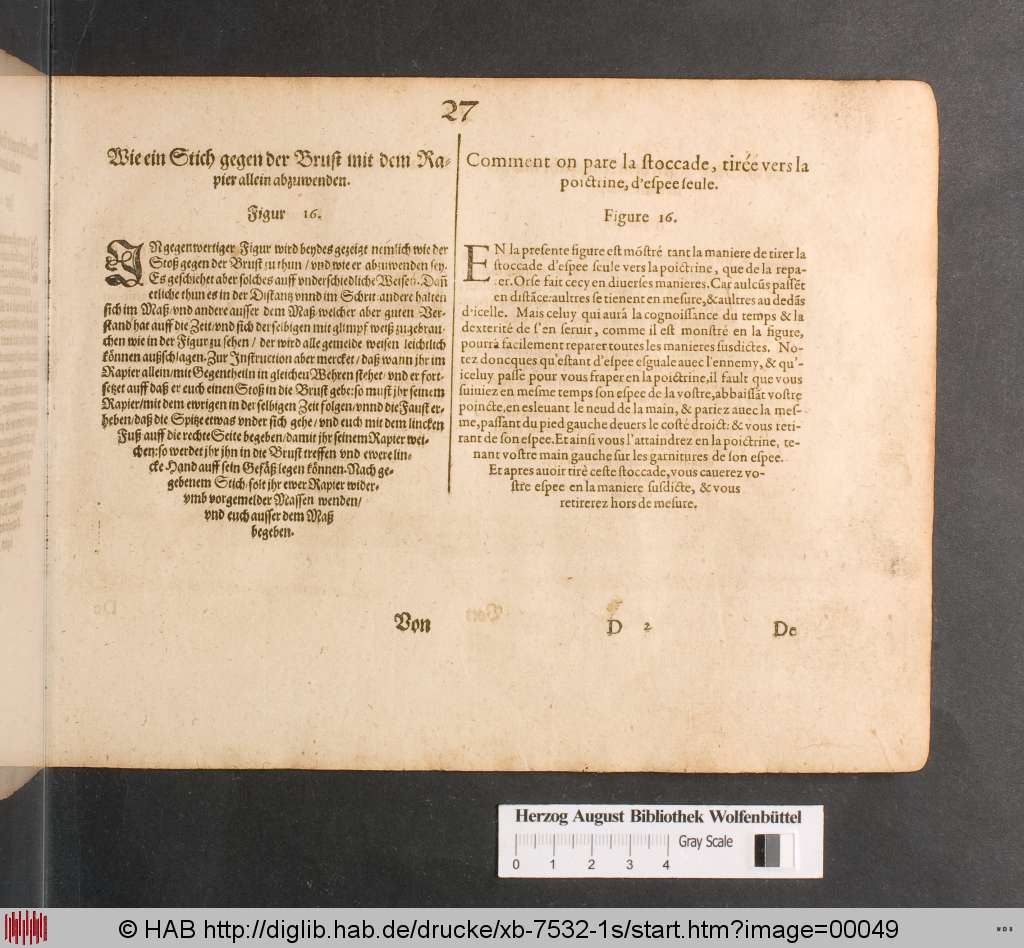 27
Wie ein Stich gegen der Brust mit dem Ra-
pier allein abzuwenden.
Figur 16.
IN gegenwertiger Figur wird beydes gezeigt nemlich wie der
Stoß gegen der Brust zu thun / vnd wie er abzuwenden sey.
Es geschiehet aber solches auff vnderschiedliche Weisen. Dañ
etliche thun es in der Distantz vnnd im Schrit andere halten
sich im Maß / vnd andere ausser dem Maß welcher aber guten Ver-
stand hat auff die Zeit / vnd sich derselbigen mit glimpf weiß zugebrau-
chen wie in der Figur zu sehen / der wird alle gemelde weisen leichtlich
können außschlagen. Zur Instruction aber mercket / daß wann jhr im
Rapier allein / mit Gegentheiln in gleichen Wehren stehet / vnd er fort-
setzet auff daß er euch einen Stoß in die Brust gebe: so must jhr seinem
Rapier / mit dem ewrigen in der selbigen Zeit folgen / vnnd die Faust er-
heben / daß die Spitze etwas vnder sich gehe / vnd euch mit dem lincken
Fuß auff die rechte Seite begeben / damit jhr seinem Rapier wei-
chen: so werdet jhr jhn in die Brust treffen vnd ewere lin-
cke Hand auff sein Gefäß legen können. Nach ge-
gebenem Stich / solt jhr ewer Rapier wider-
vmb vorgemelder Massen wenden /
vnd euch ausser dem Maß
begeben.
Von
Comment on pare la stoccade, tirée vers la
poictrine, d'espee seule.
Figure 16.
EN la presente figure est mõstré tant la maniere de tirer la
stoccade d'espee seule vers la poictrine, que de la repa-
er. Or se fait cecy en diverses manieres. Car aulcũs passẽt
en distãce: aultres se tienent en mesure, & aultres au dedãs
d'icelle. Mais celuy qui aura la cognoissance du temps & la
dexterité de s'en seruir, comme il est monstré en la figure,
pourra facilement reparer toutes les manieres susdictes. No-
tez doncques qu'estant d'espee esguale auec l'ennemy, & qu'-
iceluy passe pour vous fraper en la poictrine, il fault que vous
suiuiez en mesme temps son espee de la vostre, abbaissãt vostre
poincte, en esleuant le neud de la main, & pariez auec la mes-
me, passant du pied gauche deuers le costé droict: & vous reti-
rant de son espee. Et ainsi vous l'attaindrez en la poictrine, te-
nant vostre main gauche sur les garnitures de son espee.
Et apres auoir tirè ceste stoccade, vous cauerez vo-
stre espee en la maniere susdicte, & vous
retirerez hors de mesure.
D 2
De
Herzog August Bibliothek Wolfenbüttel
Gray Scale
0 1 2 3 4
© HAB http://diglib.hab.de/drucke/xb-7532-1s/start.htm?image=00049